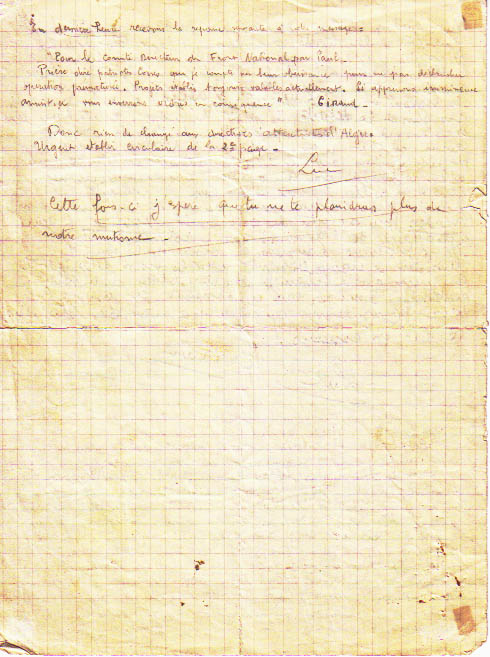 En dernière heure recevons la réponse suivante à votre message :
"Pour le Comité Directeur du Front National par Paul.
Prière dire patriotes Corses que je compte sur leur obéissance pour ne pas déclencher
opération prématurée. Projets établis toujours valables actuellement. Si apprenons imminence
armistice vous enverrons ordres en conséquence" Giraud -
Donc rien de changé aux directives d'Alger.
Urgent établir circulaire de la 2e page -
Luc
Cette fois-ci j'espère que tu ne te plaindras plus de
notre mutisme -